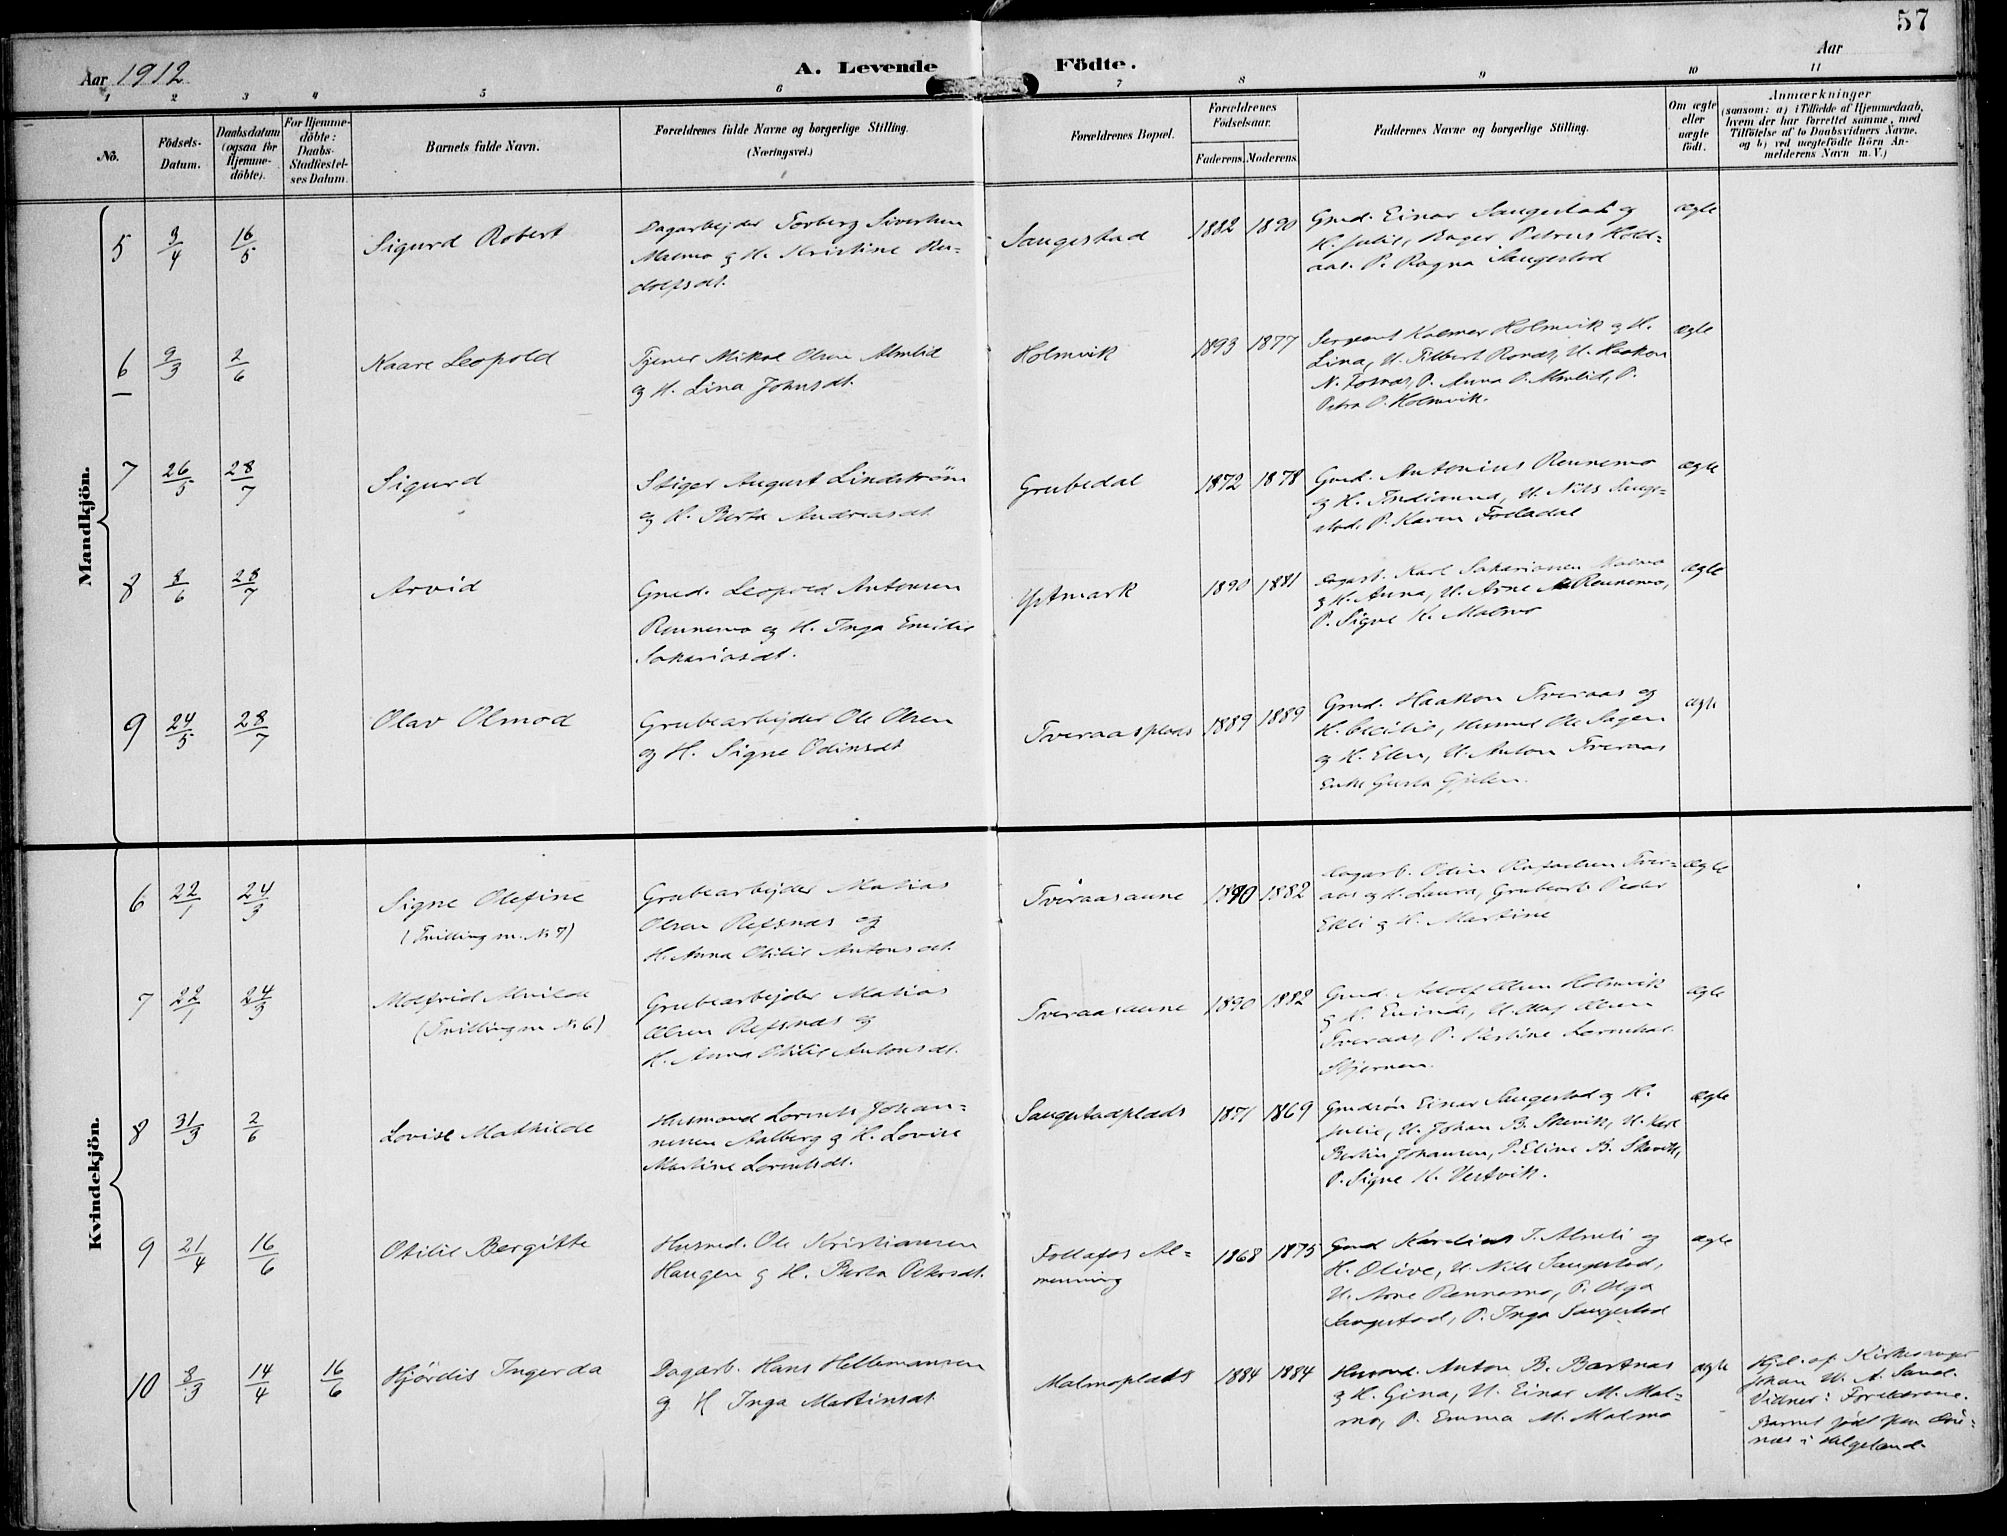 57
Aar 1912
A. Levende Födte.
Aar
1 2 3 4 5 6 7 8 9 10 11
No.
Födsels-
Datum.
Daabsdatum
(ogsaa for
Hjemme-
döbte).
For Hjemme-
döbte:
Daabs-
Stadfæstel-
ses Datum.
Barnets fulde Navn.
Forældrenes fulde Navne og borgerlige Stilling.
(Næringsvei.)
Forældrenes Bopæl.
Forældrenes
Födselsaar.
Faderens. Moderens.
Faddernes Navne og borgerlige Stilling.
Om ægte
eller
uægte
födt.
Anmærkninger
(saasom: a) i Tilfælde af Hjemmedaab,
hvem der har forrettet samme, med
Tilföielse af to Daabsvidners Navne,
og b) ved uægtefödte Börn An-
melderens Navn m. V.)
Mandkjön.
5 3/4 16/5 Sigurd Robert
Dagarbejder Torberg Sivertsen
Malmo og H. Kristine Ru-
dolfsdt.
Saugestad 1882 1890
Gmd. Einar Saugestad og
H. Julie, Petrus Hold-
aas. P. Ragna Saugestad
ægte
6 9/3 2/6 Kaare Leopold
Tjener Mikal Olsen Almlid
og H. Lina Johnsdt.
Holmvik 1893 1877
Sergeant Holmvik og H.
Lina, U. Haakon
N. Fosnæs, P. Anna O. Almlid, P.
Petra O. Holmvik.
ægte
7 26/5 28/7 Sigurd
Stiger August Lindström
og H. Berta Andreasdt.
Grubedal 1872 1878
Gmd. Antonius Rennemo
og H. Indianna, U. Nils Sauge-
stad. P. Karen Folladal
ægte
8 8/6 28/7 Arvid
Gmd. Leopold Antonsen
Rennemo og H. Inga Emilie
Sakariasdt.
Ystmark 1890 1881
Dagarb. Karl Sakariasen Malmo
og H. Anna, U. Arne Rennemo,
P. Signe K. Malmo
ægte
9 24/5 28/7 Olav Olmod
Grubearbejder Ole Olsen
og H. Signe Odinsdt.
Tveraasplads 1889 1889
Gmd. Haakon Tveraas og
H. Cecilie, Husmd Ole Sagen
og H. Elen, U. Anton Tveraas
Enke
ægte
Kvindekjön.
6 22/1 24/3 Signe Olefine
(Tvilling m. No 7)
Grubearbejder Matias
Olsen Refsnæs og
H. Anna Otilie Antonsdt.
Tveraasaune 1890 1882
Dagarb. Odin Rafaelsen Tver-
aas og H. Laura, Grubearb. Peder
Ekli og H. Martine
ægte
7 22/1 24/3 Molfrid Alvilde
(Tvilling m No 6)
Grubearbejder Matias
Olsen Refsnæs og
H. Anna Otilie Antonsdt.
Tveraasaune 1890 1882
Gmd. Adolf Olsen Holmvik
og H. U. Olaf Olsen
Tveraas, P.
Stjernen.
ægte
8 31/3 2/6 Lovise Mathilde
Husmand Lorents Johan-
nesen Aalberg og H. Lovise
Martine Lorentsdt.
Saugestadplads 1871 1869
Gmdsön Einar Saugestad og H.
Julie, U. Johan B. Skevik, U. Karl
Bertin Johansen, P. Eline B. Skevik,
P. Signe H. Vestvik.
ægte
9 21/4 16/6 Otilie Bergitte
Husmd. Ole Kristiansen
Haugen og H. Berta Petersdt.
Follafos Al-
menning
1868 1875
Gmd J. Almli og
H. Olive, U. Nils Saugestad,
U. Arne Rennemo, P. Olga
Saugestad, P. Inga Saugestad
ægte
10 8/3 14/4 16/6 Hjördis Ingerda
Dagarb. Hans Hellemansen
og H Inga Martinsdt.
Malmoplads 1884 1884
Husmd. Anton B. Bartnæs
og H. Gina, U. Einar M. Mal-
mo, P. Emma M. Malmo
ægte
Hjd. af Kirkesanger
Johan W. A. Sand.
Vidner: Forældrene.
Barnet född paa
næs i Helgeland.